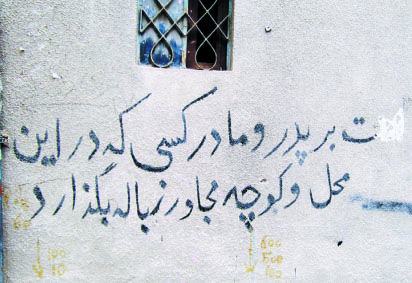 ت بر پدر و مادر کسی که در این
محل و کوچه مجاور زباله بگذارد
100
10
600
500
100